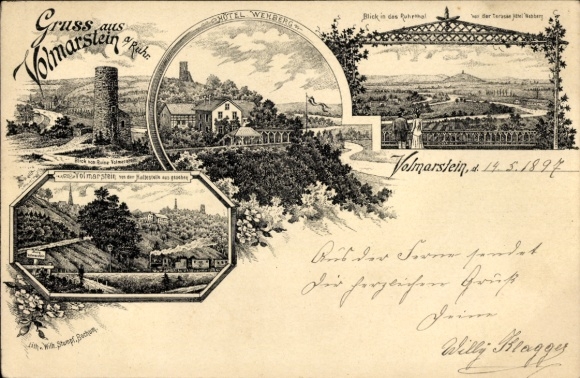 Gruss aus
Volmarstein a/Ruhr.
HÔTEL WEHBERG
Blick in das Ruhrthal von der Terrasse Hôtel Wehberg
Blick von Ruine Volmarstein
Volmarstein von der Haltestelle aus gesehen
Volmarstein, d. 19.5.1897
Aus der Ferne sendet
Dir herzlichen Gruß
Deine
Willy Klagges
Lith. v. Wilh. Stumpf, Bochum.